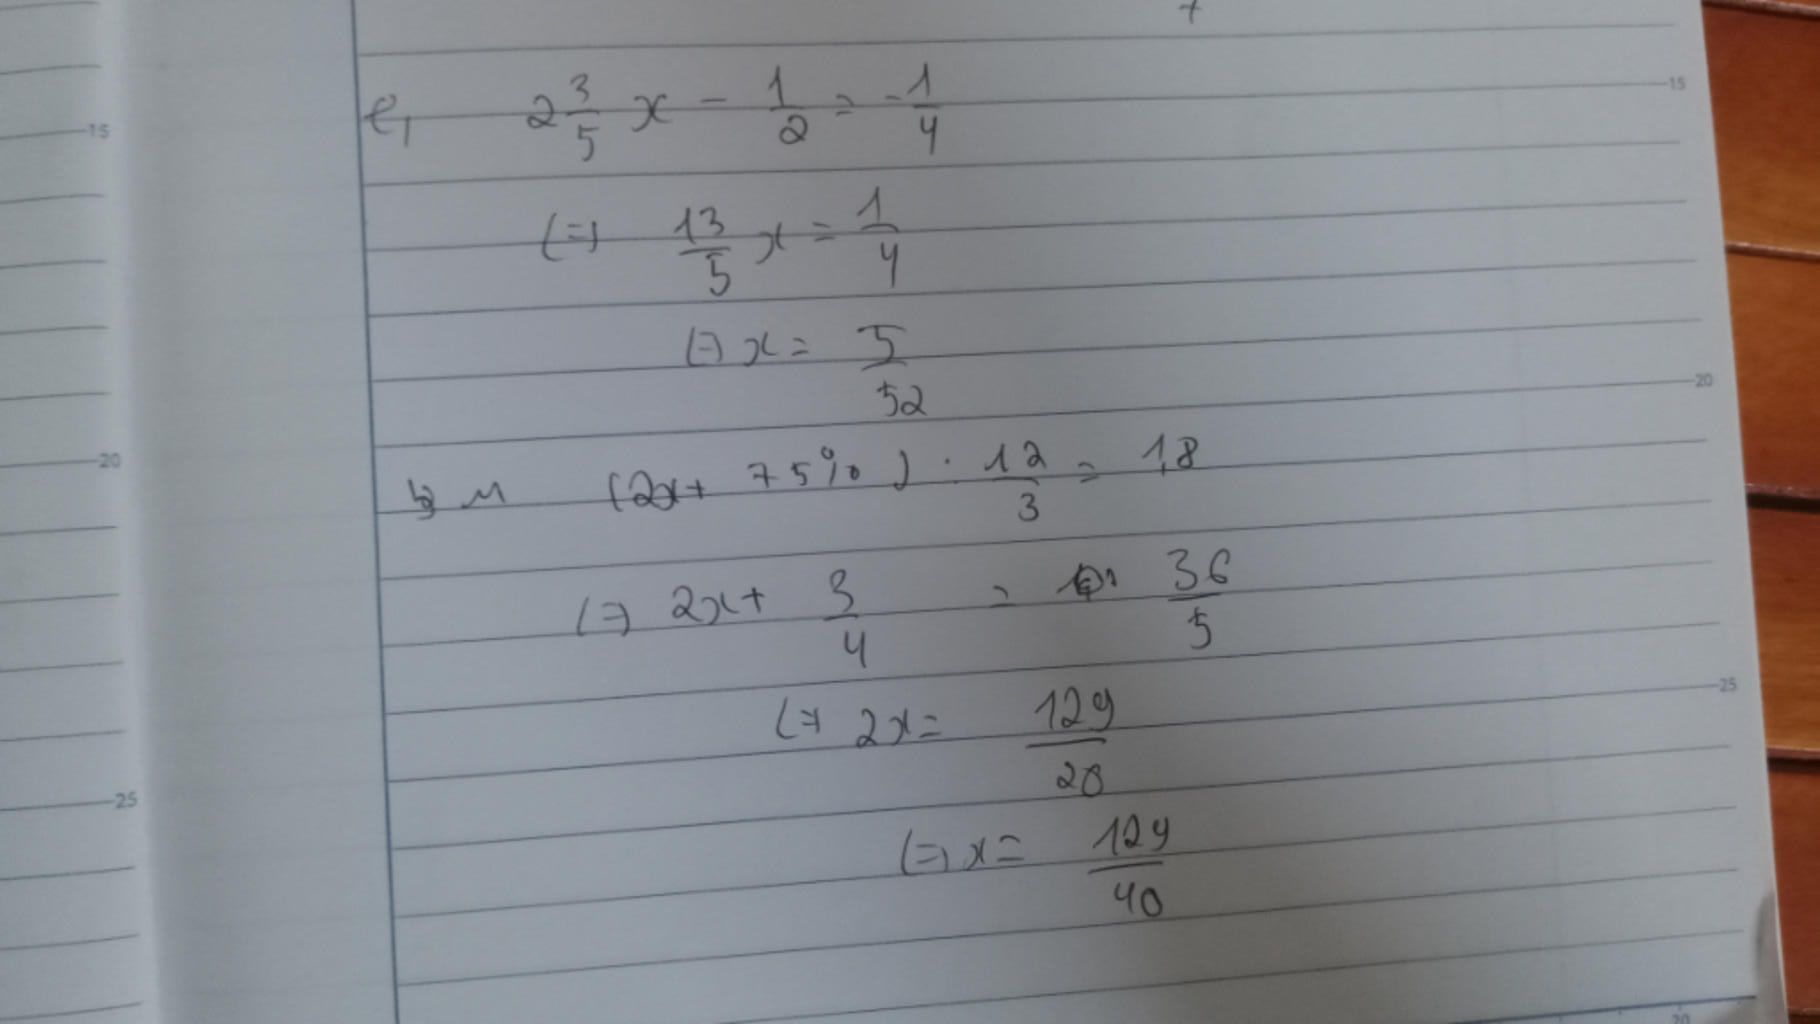 e, 2 3/5 x - 1/2 = -1/4
(=) 13/5 x = 1/4
(=) x = 5/52
(2x + 75%) . 12/3 = 1,8
(=) 2x + 3/4 = 36/5
(=) 2x = 129/20
(=) x = 129/40
15
20
25
15
20
25